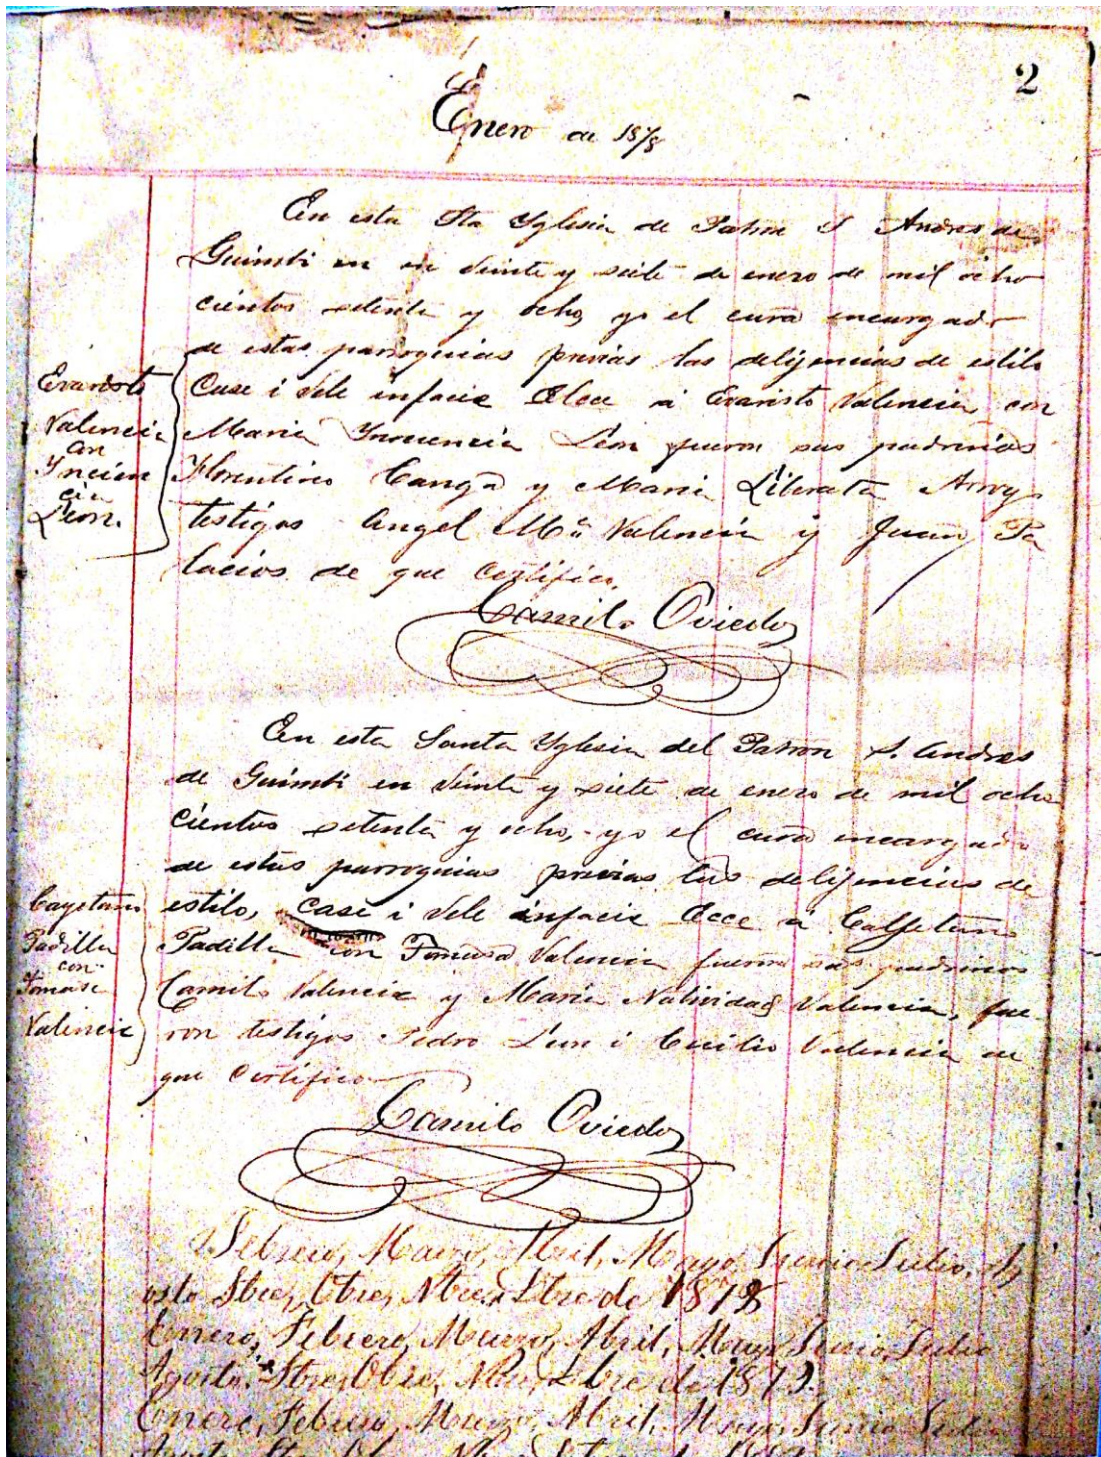 2
Enero de 1878
En esta Sta Yglesia de Patron S Andres de
Guimbi en en veinte y siete de enero de mil ocho
cientos setenta y ocho, yo el cura encargado
de estas parroquias previas las delijencias de estilo
Case i vele infacie Elece a Evaristo Valencia con
Maria Ynocencia Leon fueron sus padrinos
Florentino Canga y Maria Liberata Arroy
testigos Angel Ma Valencia y Juan Pa
lacios de que Certifico.
Evaristo
Valencia
con
Leon.
Camilo Oviedo
En esta Santa Yglesia del Patron S. Andres
de Guimbi en veinte y siete de enero de mil ocho
cientos setenta y ocho, yo el cura encargado
de estas parroquias previas las delijencias de
estilo, Case i vele infacie Ecce a
Padilla con Tomasa Valencia fueron sus padrinos
Camilo Valencia y Maria Natividad Valencia, fue
ron testigos Pedro Leon i Cecilio Valencia de
que Certifico
Cayetano
Padilla
con
Tomasa
Valencia
Camilo Oviedo
Febrero, Marzo, Abril, Mayo, Junio Julio, Ag
osto Sbre, Obre, Nbre, Dbre de 1878
Enero, Febrero, Marzo, Abril, Mayo Junio Julio
Agosto, Stre, Obre, Nbre, Dbre de 1879.
Enero, Febrero, Marzo, Abril, Mayo, Junio Julio